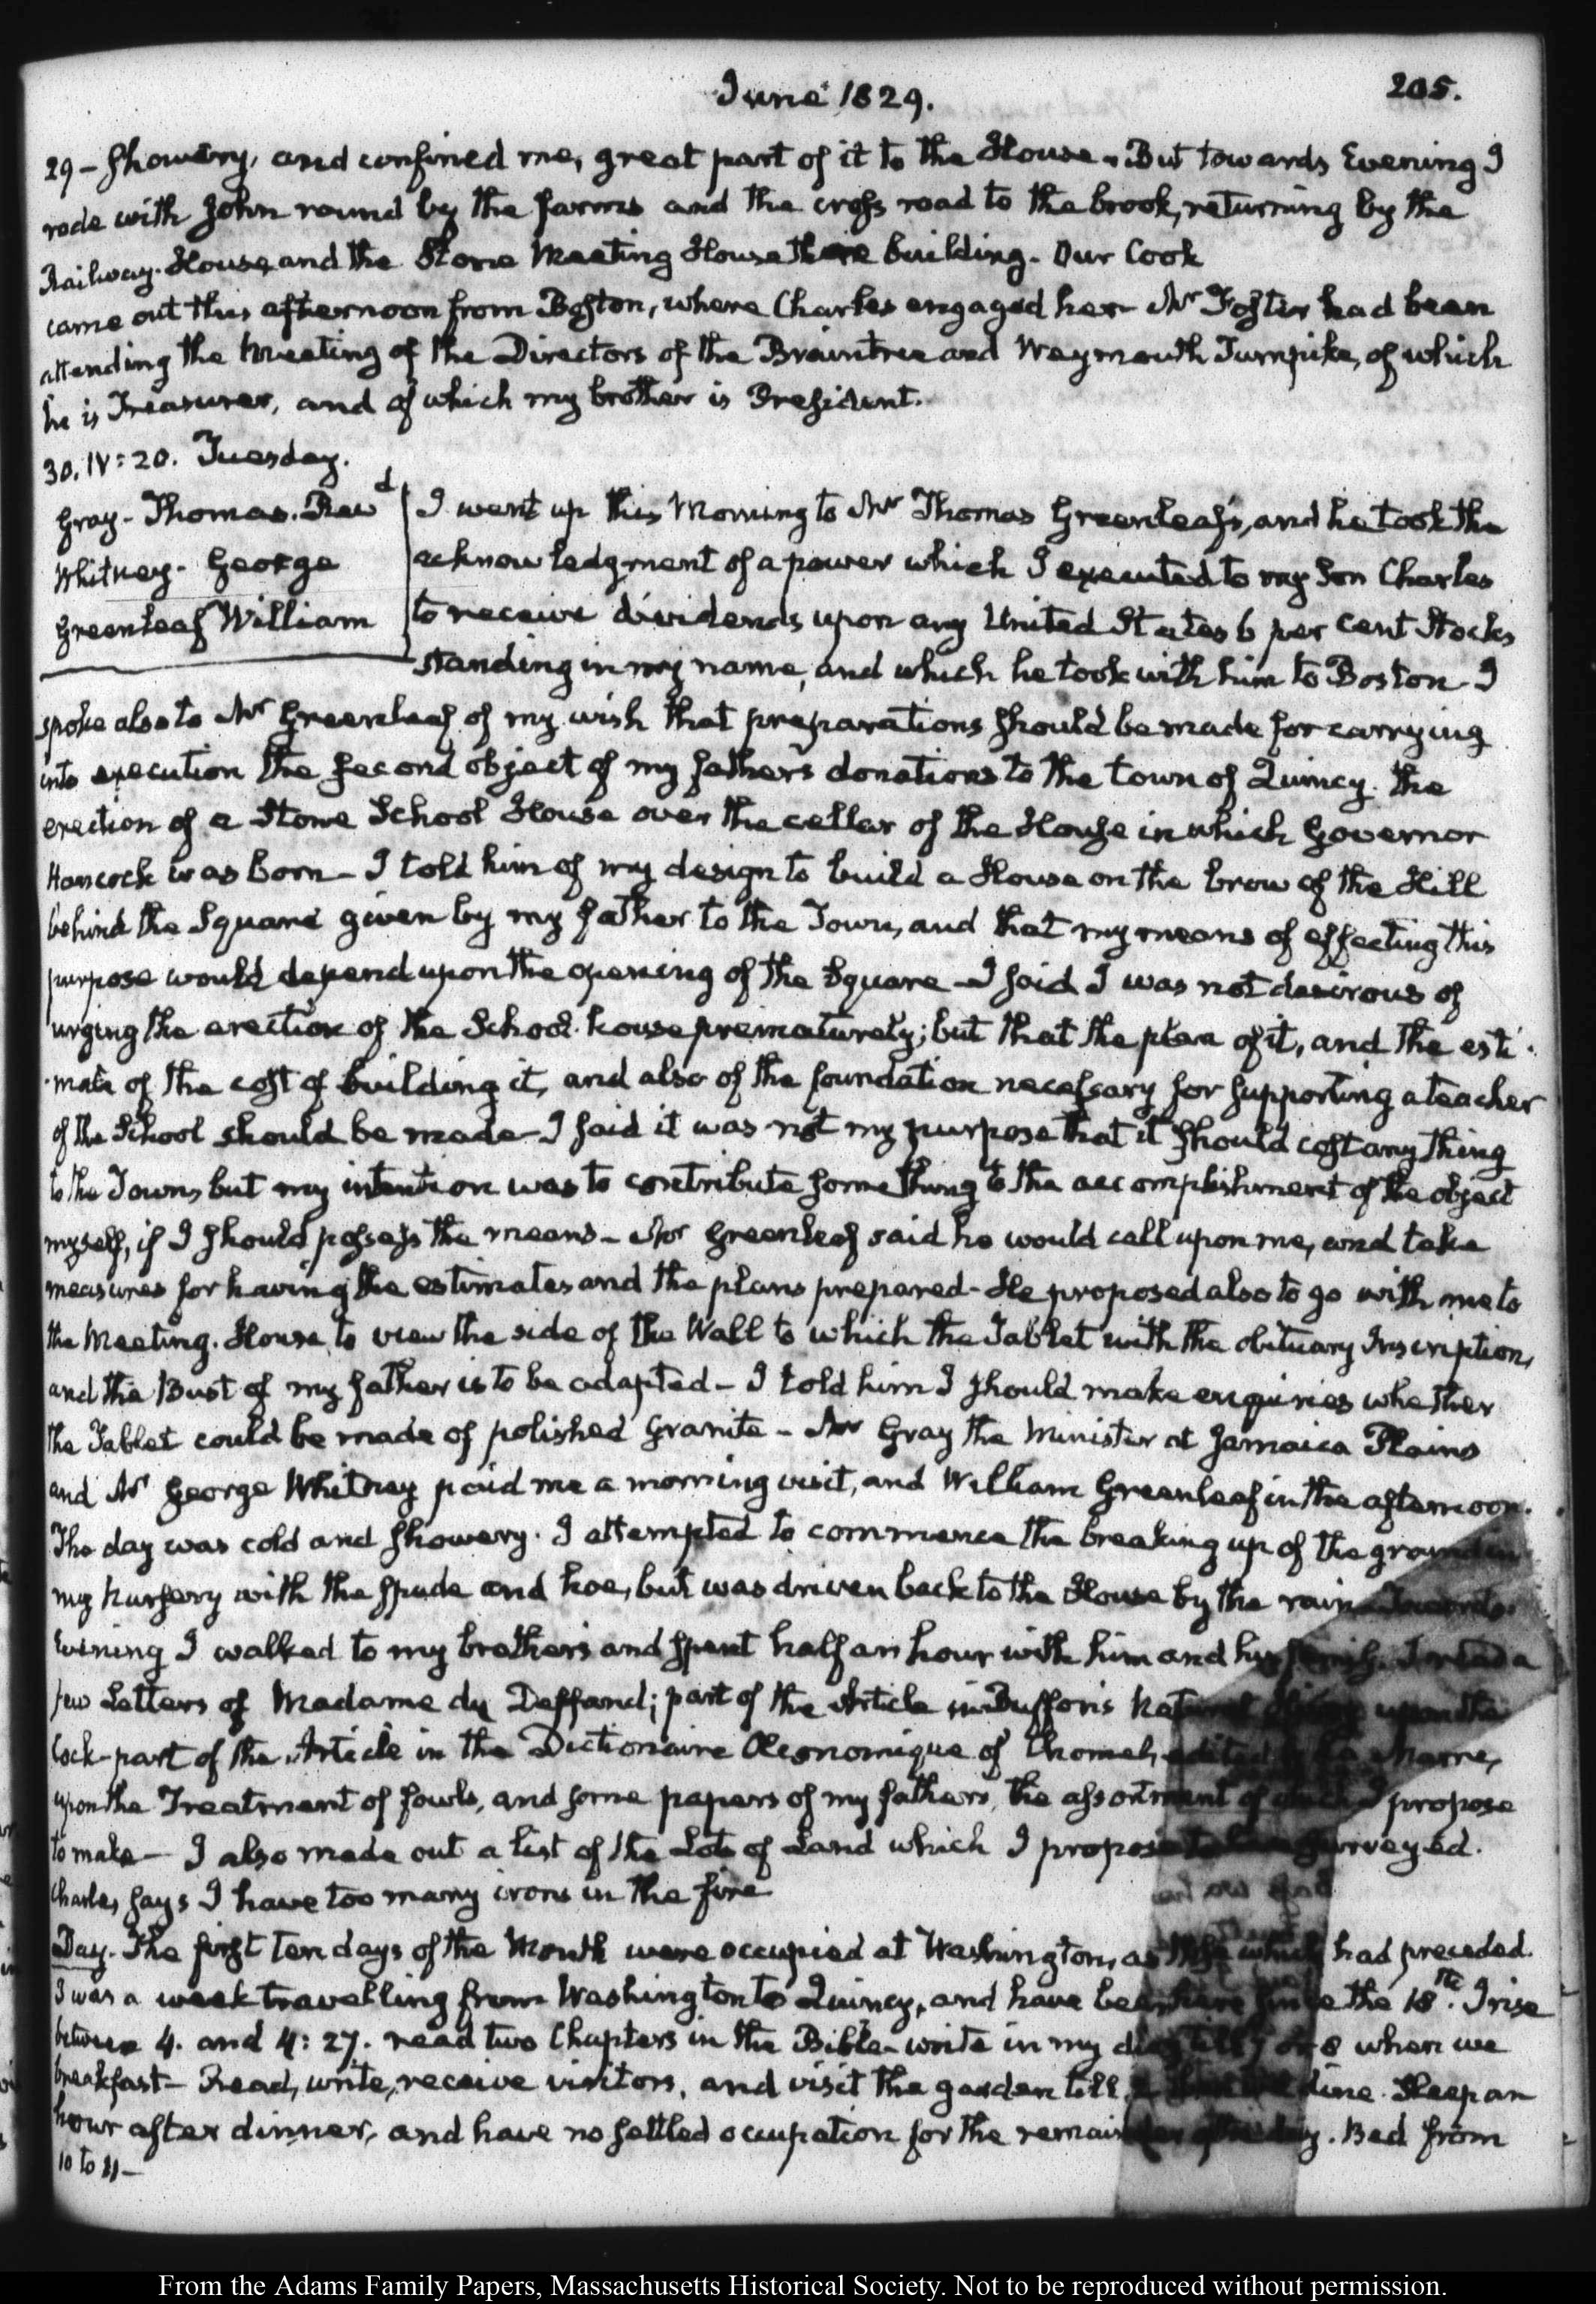 June 1829.
205.
29 – Showery, and confined me, great part of it to the House. But towards Evening I
rode with John round by the farms and the cross road to the brook, returning by the
Railway. House, and the Stone Meeting House there building. Our Cook
came out this afternoon from Boston, where Charles engaged her. Mr Foster had been
attending the Meeting of the Directors of the Braintree and Weymouth Turnpike, of which
he is Treasurer, and of which my brother is President.
30. IV: 20. Tuesday.
Gray - Thomas. Revd
Whitney - George
Greenleaf William
I went up this Morning to Mr Thomas Greenleaf's, and he took the
acknowledgment of a power which I executed to my Son Charles
to receive dividends upon any United States 6 per cent Stocks
standing in my name, and which he took with him to Boston - I
spoke also to Mr Greenleaf of my wish that preparations should be made for carrying
into execution the second object of my father's donations to the town of Quincy. the
erection of a Stone School House over the cellar of the House in which Governor
Hancock was born - I told him of my design to build a House on the brow of the Hill
behind the Square given by my father to the Town, and that my means of effecting this
purpose would depend upon the opening of the Square - I said I was not desirous of
urging the erection of the School-house prematurely; but that the plan of it, and the esti-
-mate of the cost of building it, and also of the foundation necessary for supporting a teacher
of the School should be made - I said it was not my purpose that it should cost any thing
to the Town, but my intention was to contribute something to the accomplishment of the object
myself, if I should possess the means - Mr Greenleaf said he would call upon me, and take
measures for having the estimates and the plans prepared - He proposed also to go with me to
the Meeting-House, to view the side of the Wall to which the Tablet with the obituary Inscription,
and the Bust of my father is to be adapted - I told him I should make enquiries whether
the Tablet could be made of polished Granite - Mr Gray the Minister at Jamaica Plains
and Mr George Whitney paid me a morning visit, and William Greenleaf in the afternoon.
The day was cold and showery. I attempted to commence the breaking up of the ground in
my nursery with the spade and hoe, but was driven back to the House by the rain. Towards
Evening I walked to my brother's and spent half an hour with him and his family. I read a
few Letters of Madame du Deffand; part of the Article in Buffon's Natural History upon the
Cock - part of the Article in the Dictionaire Oeconomique of Chomel, edited by La Marre,
upon the Treatment of fowls, and some papers of my father's, the assortment of which I propose
to make - I also made out a list of the Lots of Land which I propose to have surveyed.
Charles says I have too many irons in the fire.
Day. The first ten days of the Month were occupied at Washington, as those which had preceded.
I was a week travelling from Washington to Quincy, and have been here since the 18th. I rise
between 4. and 4: 27. read two Chapters in the Bible - write in my diary till 7 or 8 when we
breakfast - Read, write, receive visitors, and visit the garden till dine. Sleep an
hour after dinner, and have no settled occupation for the remainder of the day. Bed from
10 to 11 -
From the Adams Family Papers, Massachusetts Historical Society. Not to be reproduced without permission.